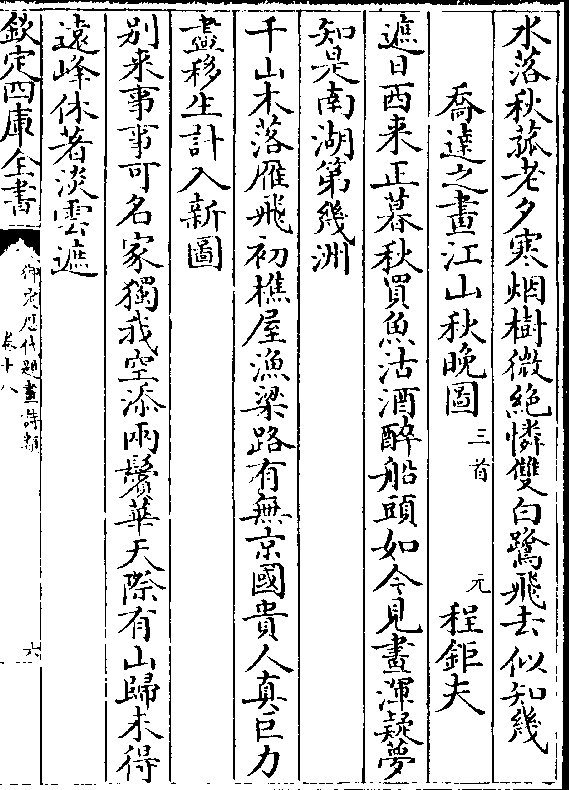 水落秋菰老夕寒烟樹微絶憐雙白鷺飛去似知幾
喬達之畫江山秋晚圖 三首 元 程鉅夫
遮日西来正暮秋買魚沽酒醉船頭如今見畫渾疑夢
知是南湖第幾洲
千山木落雁飛初樵屋漁梁路有無京國貴人真巨力
盡移生計入新圖
别来事事可名家獨我空添兩鬢華天際有山歸未得
遠峰休著淡雲遮
欽定四庫全書
御定歴代題畫詩類
卷十八
六